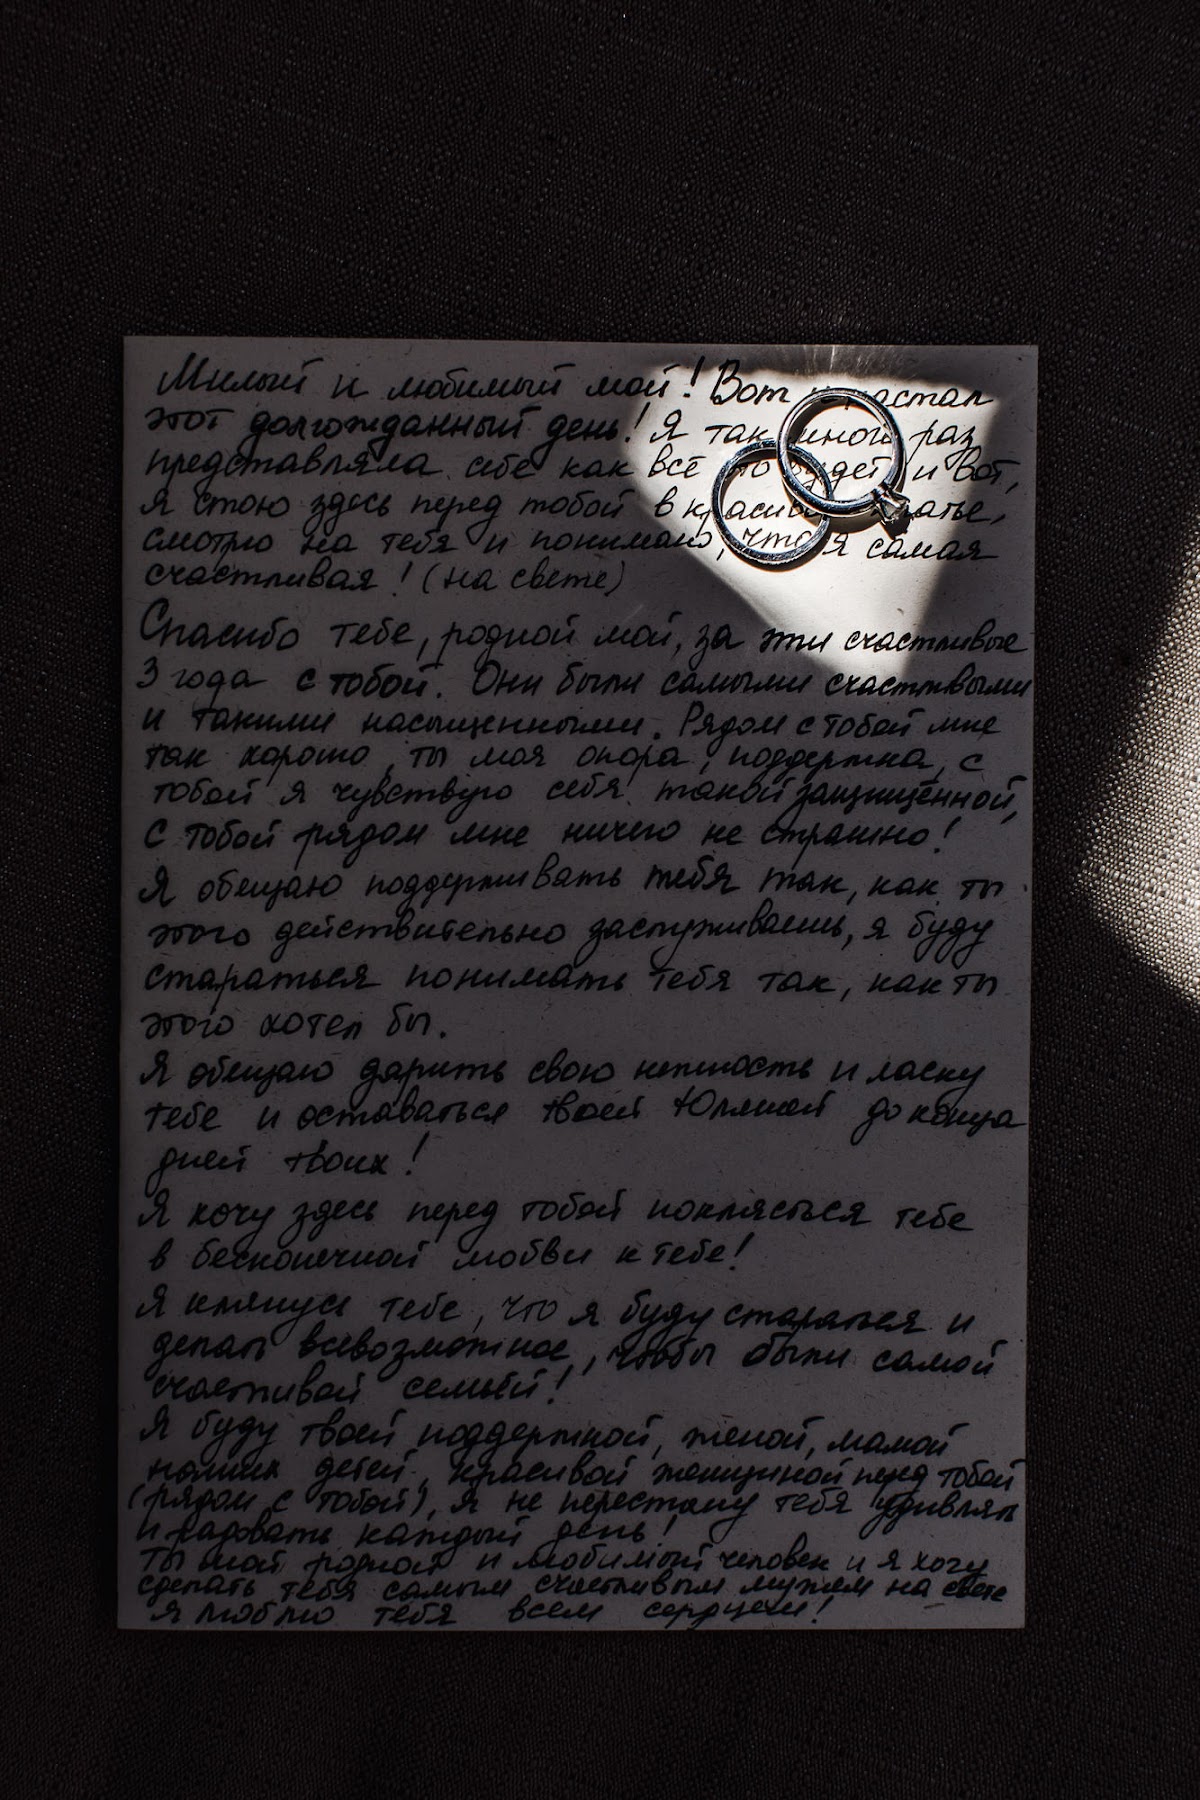 Милый и любимый мой! Вот и настал
этот долгожданный день! Я так много раз
представляла себе как всё это будет и вот,
я стою здесь перед тобой в красивом платье,
смотрю на тебя и понимаю, что я самая
счастливая! (на свете)
Спасибо тебе, родной мой, за эти счастливые
3 года с тобой. Они были самыми счастливыми
и такими насыщенными. Рядом с тобой мне
так хорошо, ты моя опора, поддержка, с
тобой я чувствую себя такой защищённой,
с тобой рядом мне ничего не страшно!
Я обещаю поддерживать тебя так, как ты
этого действительно заслуживаешь, я буду
стараться понимать тебя так, как ты
этого хотел бы.
Я обещаю дарить свою нежность и ласку
тебе и оставаться твоей до конца
дней твоих!
Я хочу здесь перед тобой поклясться тебе
в бесконечной любви к тебе!
Я клянусь тебе, что я буду стараться и
делать всевозможное, чтобы были самой
счастливой семьёй!
Я буду твоей поддержкой, женой, мамой
наших детей, красивой женщиной перед тобой
(рядом с тобой), я не перестану тебя удивлять
и радовать каждый день!
Ты мой родной и любимый человек и я хочу
сделать тебя самым счастливым мужем на свете
я люблю тебя всем сердцем!